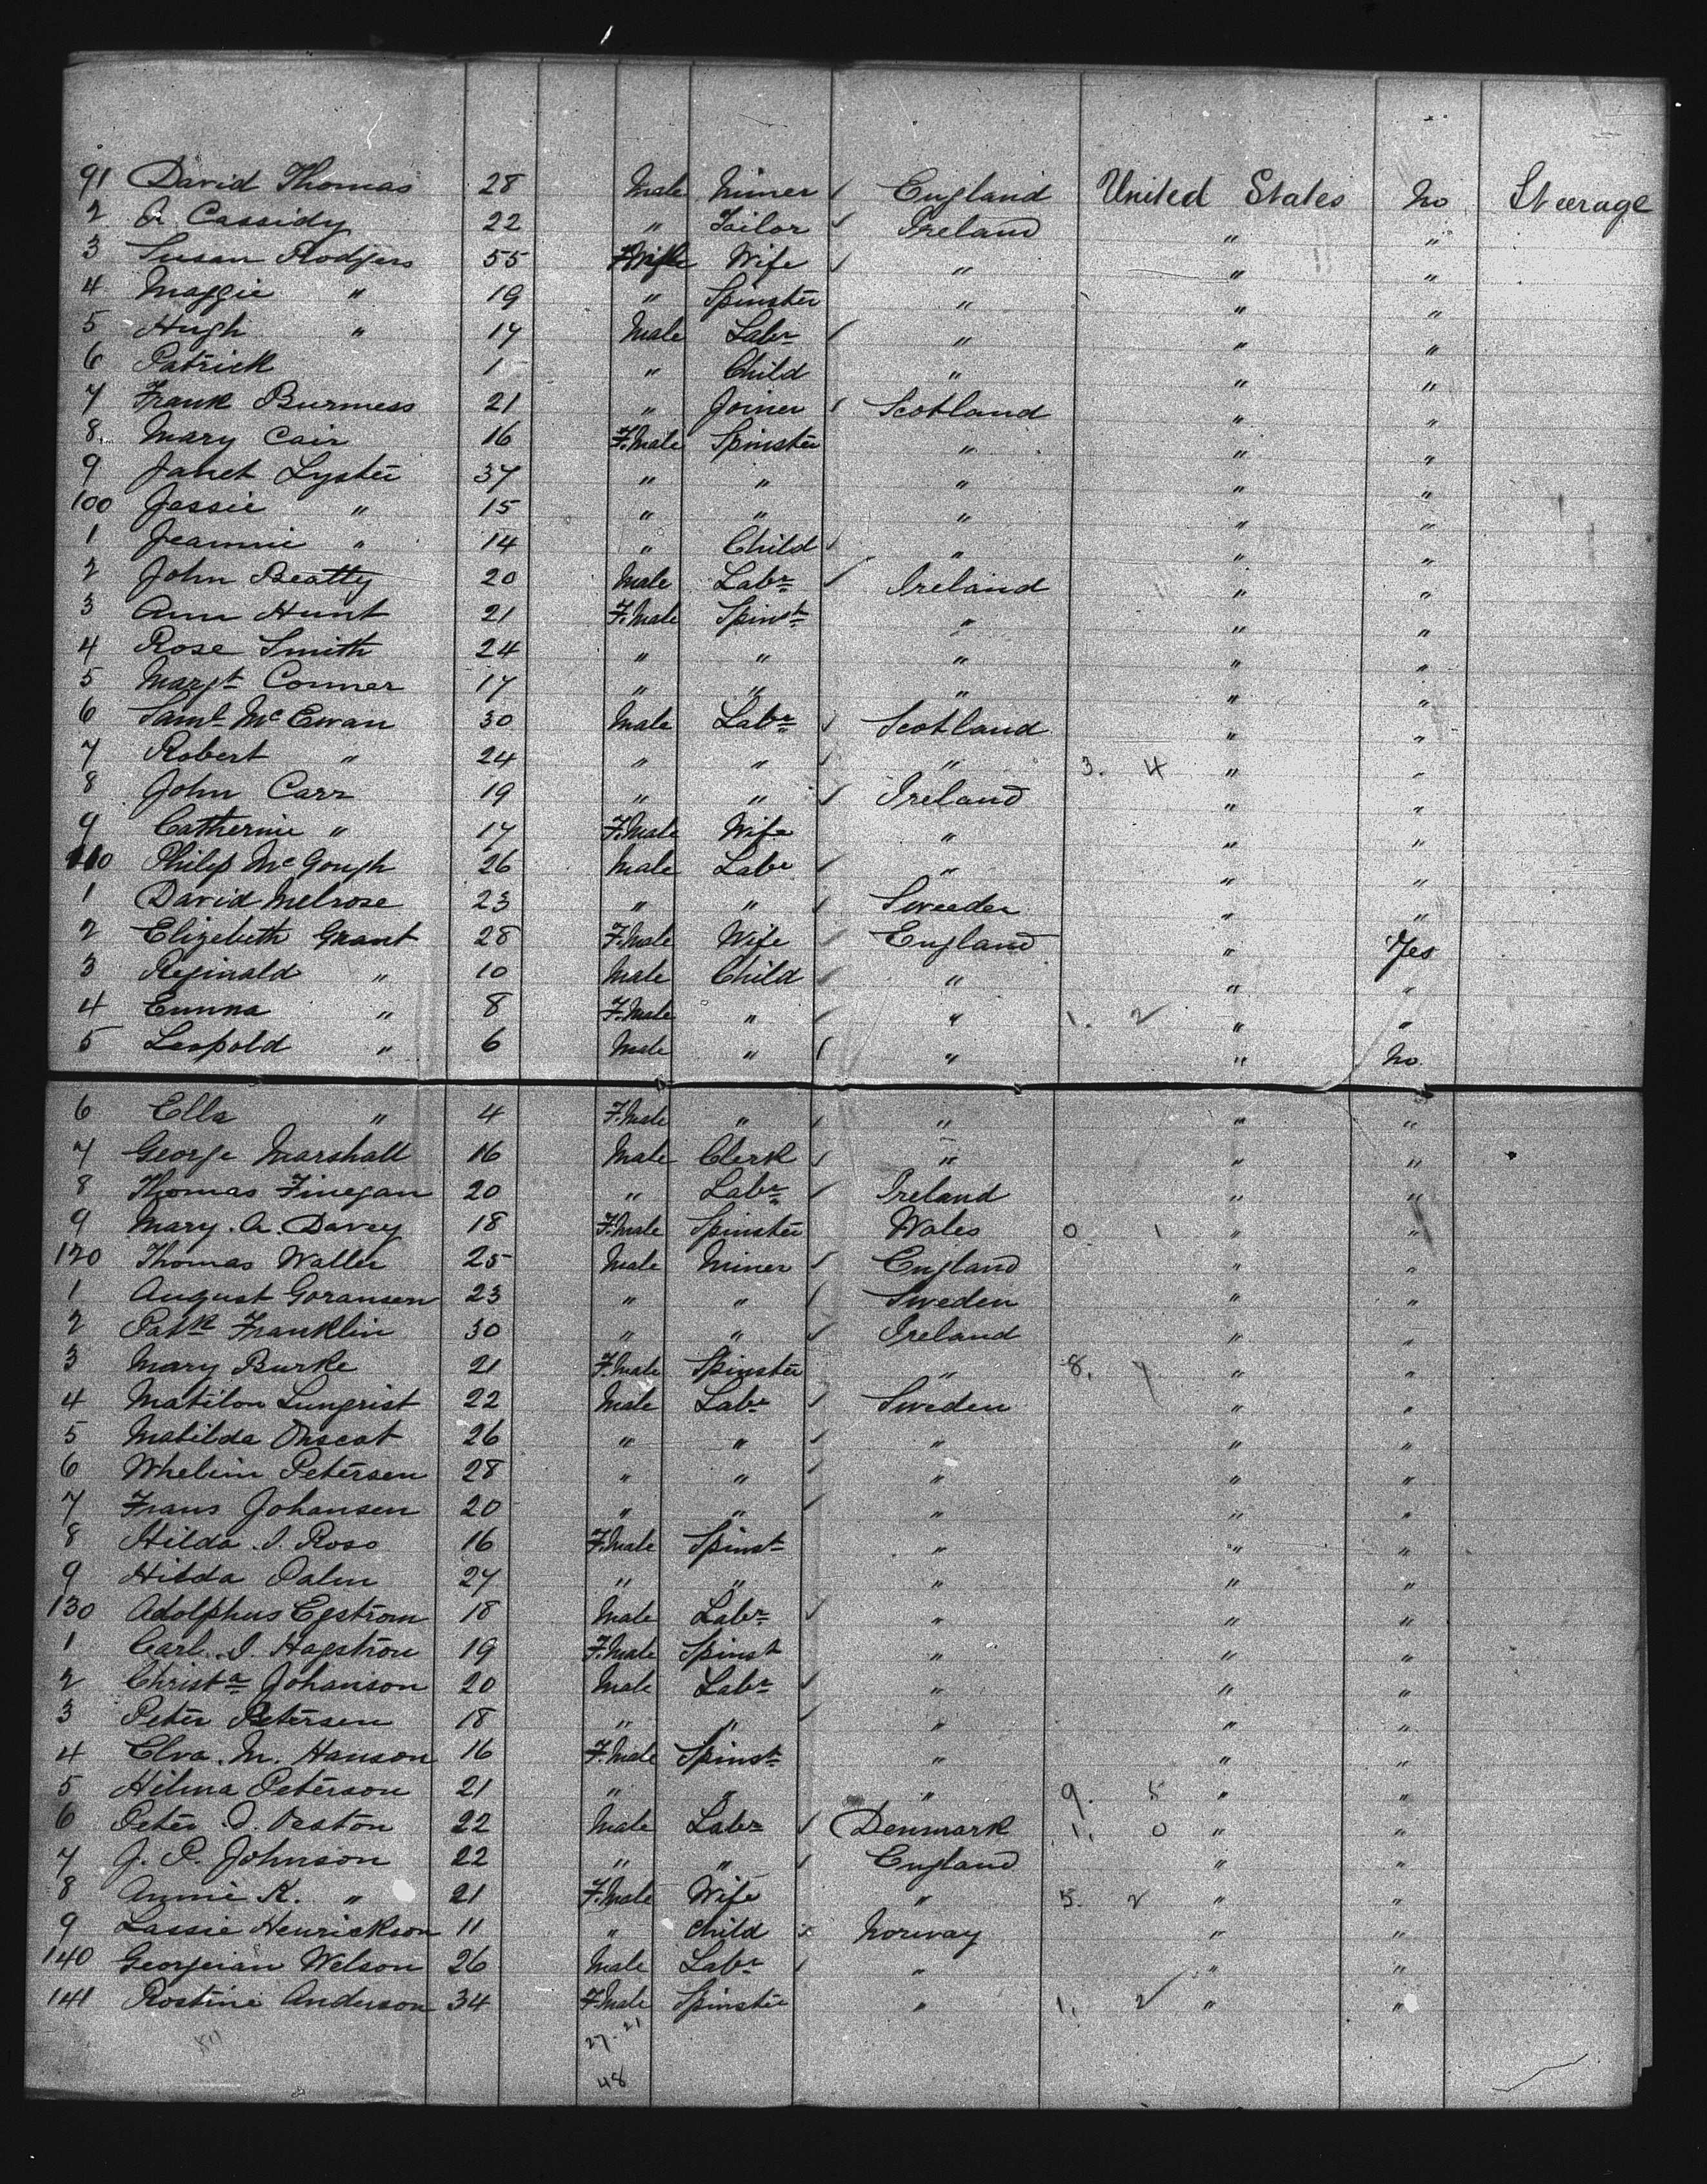 91 David Thomas 28 Male Miner England United States No Steerage
2 A. Cassidy 22 " Tailor Ireland " "
3 Susan Rodgers 55 Wife " " "
4 Maggie " 19 " Spinster " " "
5 Hugh " 17 Male Labr " " "
6 Patrick 1 " Child " " "
7 Frank Burness 21 " Joiner Scotland " "
8 Mary Cair 16 F.Male Spinster " " "
9 Janet Lyster 37 " " " " "
100 Jessie " 15 " " " " "
1 Jeannie " 14 " Child " " "
2 John Beatty 20 Male Labr Ireland " "
3 Ann Hunt 21 F.Male Spinst " " "
4 Rose Smith 24 " " " " "
5 Margt Conner 17 " " " " "
6 Saml McEwan 30 Male Labr Scotland " "
7 Robert " 24 " " " 3. 4 " "
8 John Carr 19 " " Ireland " "
9 Catherine " 17 F.Male Wife " " "
110 Philip McGough 26 Male Labr " " "
1 David Melrose 23 " " Sweeden " "
2 Elizebeth Grant 28 F.Male Wife England " Yes
3 Reginald " 10 Male Child " " "
4 Emma " 8 F.Male " " 1. 2 " "
5 Leopold " 6 Male " " " No
6 Ella " 4 F.Male " " " "
7 George Marshall 16 Male Clerk " " "
8 Thomas Finegan 20 " Labr Ireland " "
9 Mary. A. Davey 18 F.Male Spinster Wales 0. 1 " "
120 Thomas Waller 25 Male Miner England " "
1 August Goransen 23 " " Sweden " "
2 Patk Franklin 30 " " Ireland " "
3 Mary Burke 21 F.Male Spinster " 8. 7 " "
4 Matilon Lungrist 22 Male Labr Sweden " "
5 Matilda 26 " " " " "
6 Whelim Petersen 28 " " " " "
7 Frans Johansen 20 " " " " "
8 Hilda. I. Roso 16 F.Male Spinst " " "
9 Hilda Palm 27 " " " " "
130 Adolphus Egstrom 18 Male Labr " " "
1 Carl. I. Hagstrou 19 F.Male Spinst " " "
2 Christa Johanson 20 Male Labr " " "
3 Peter Petersen 18 " " " " "
4 Elva. M. Hanson 16 F.Male Spinst " " "
5 Hilma Peterson 21 " " " 9. 5 " "
6 Peter. I. 22 Male Labr Denmark 1. 0 " "
7 J. P. Johnson 22 " " England " "
8 Annie K. " 21 F.Male Wife " 5. 2 " "
9 Lassie Henrickson 11 " Child Norway " "
140 Georgeian Welson 26 Male Labr " " "
141 Rostine Anderson 34 F.Male Spinster " 1. 2 " "
27. 21
48